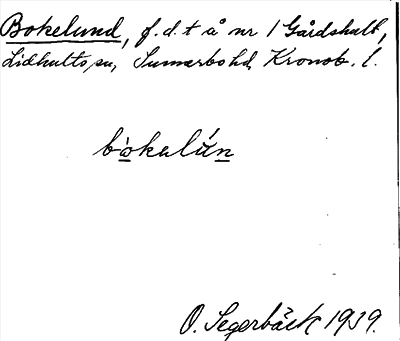 Bokelund, f.d.t å nr 1 Gårdshult,
Lidhults sn, Sunnerbo hd, Kronob. l.
bòkelún
O. Segerbäck 1939.